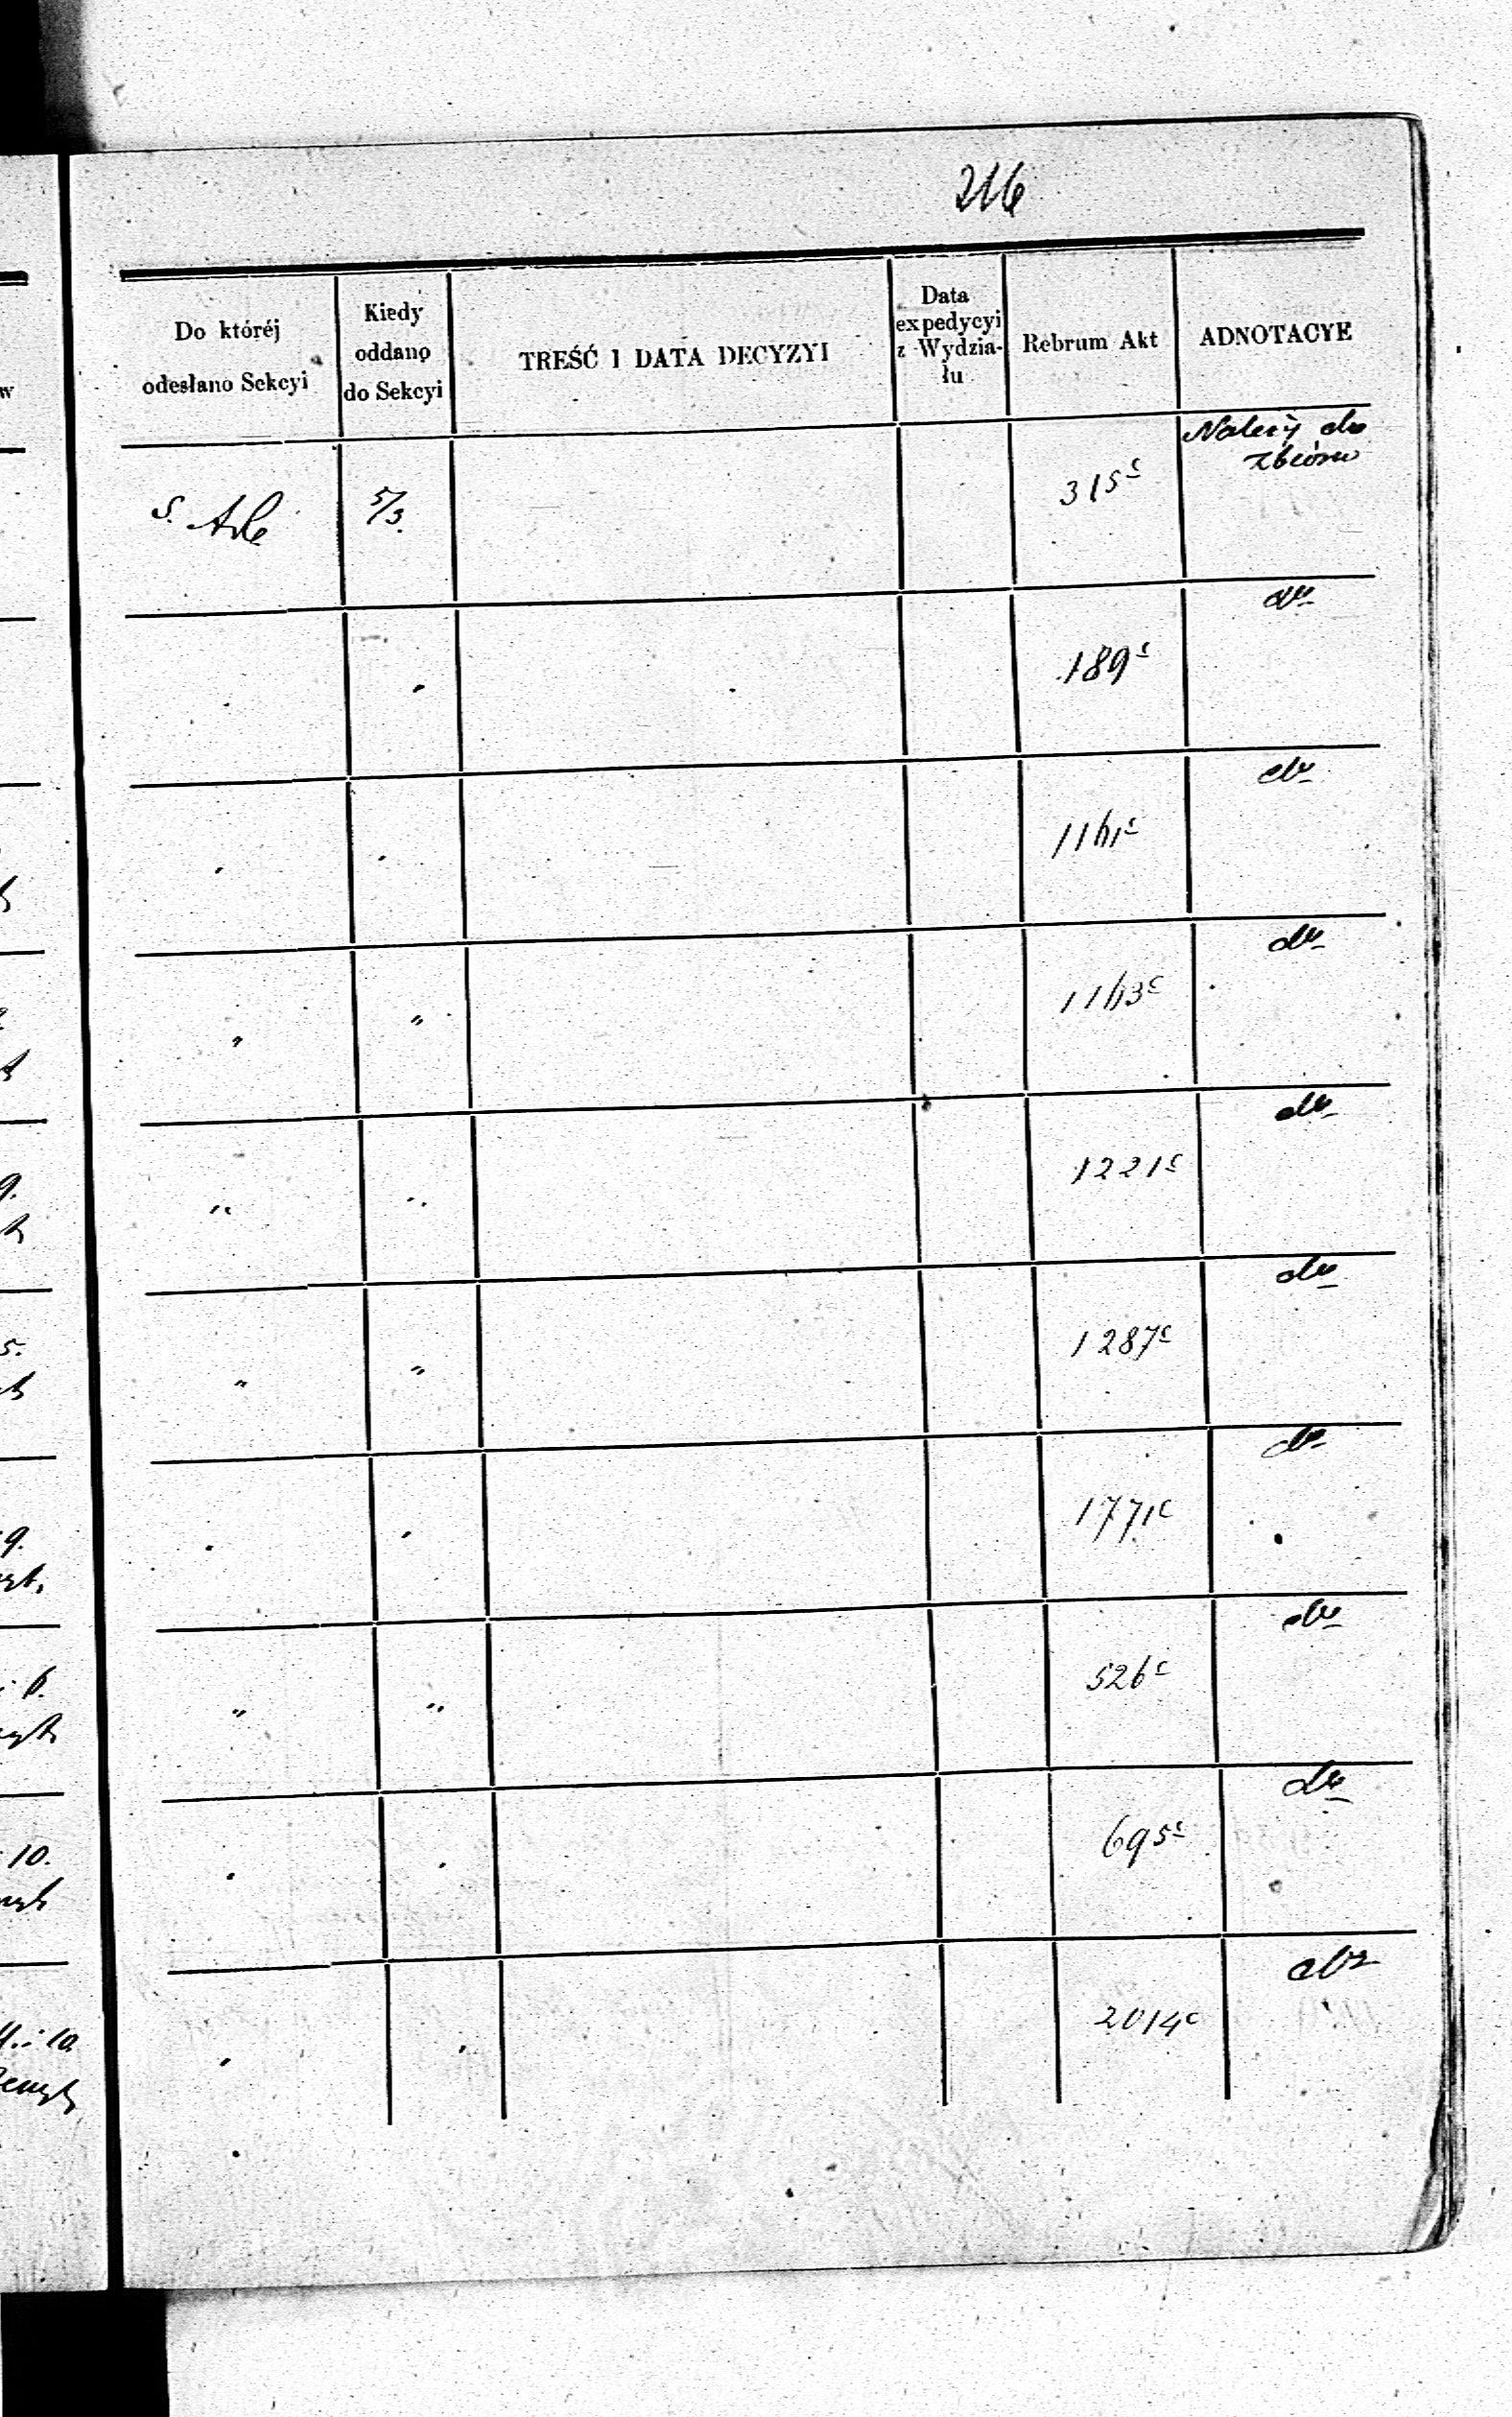 216
Do któréj
odesłano Sekcyi
Kiedy
oddano
do Sekcyi
TREŚĆ I DATA DECYZYI
Data
expedycyi
z Wydzia-
łu
Rebrum Akt
ADNOTACYE
Należy do
zbioru
S.
5/3.
315c
do
189c
do
do
do
1221c
do
1287c
do
1771c
do
526c
do
695c
do
2014c
9.
5.
9.
10.